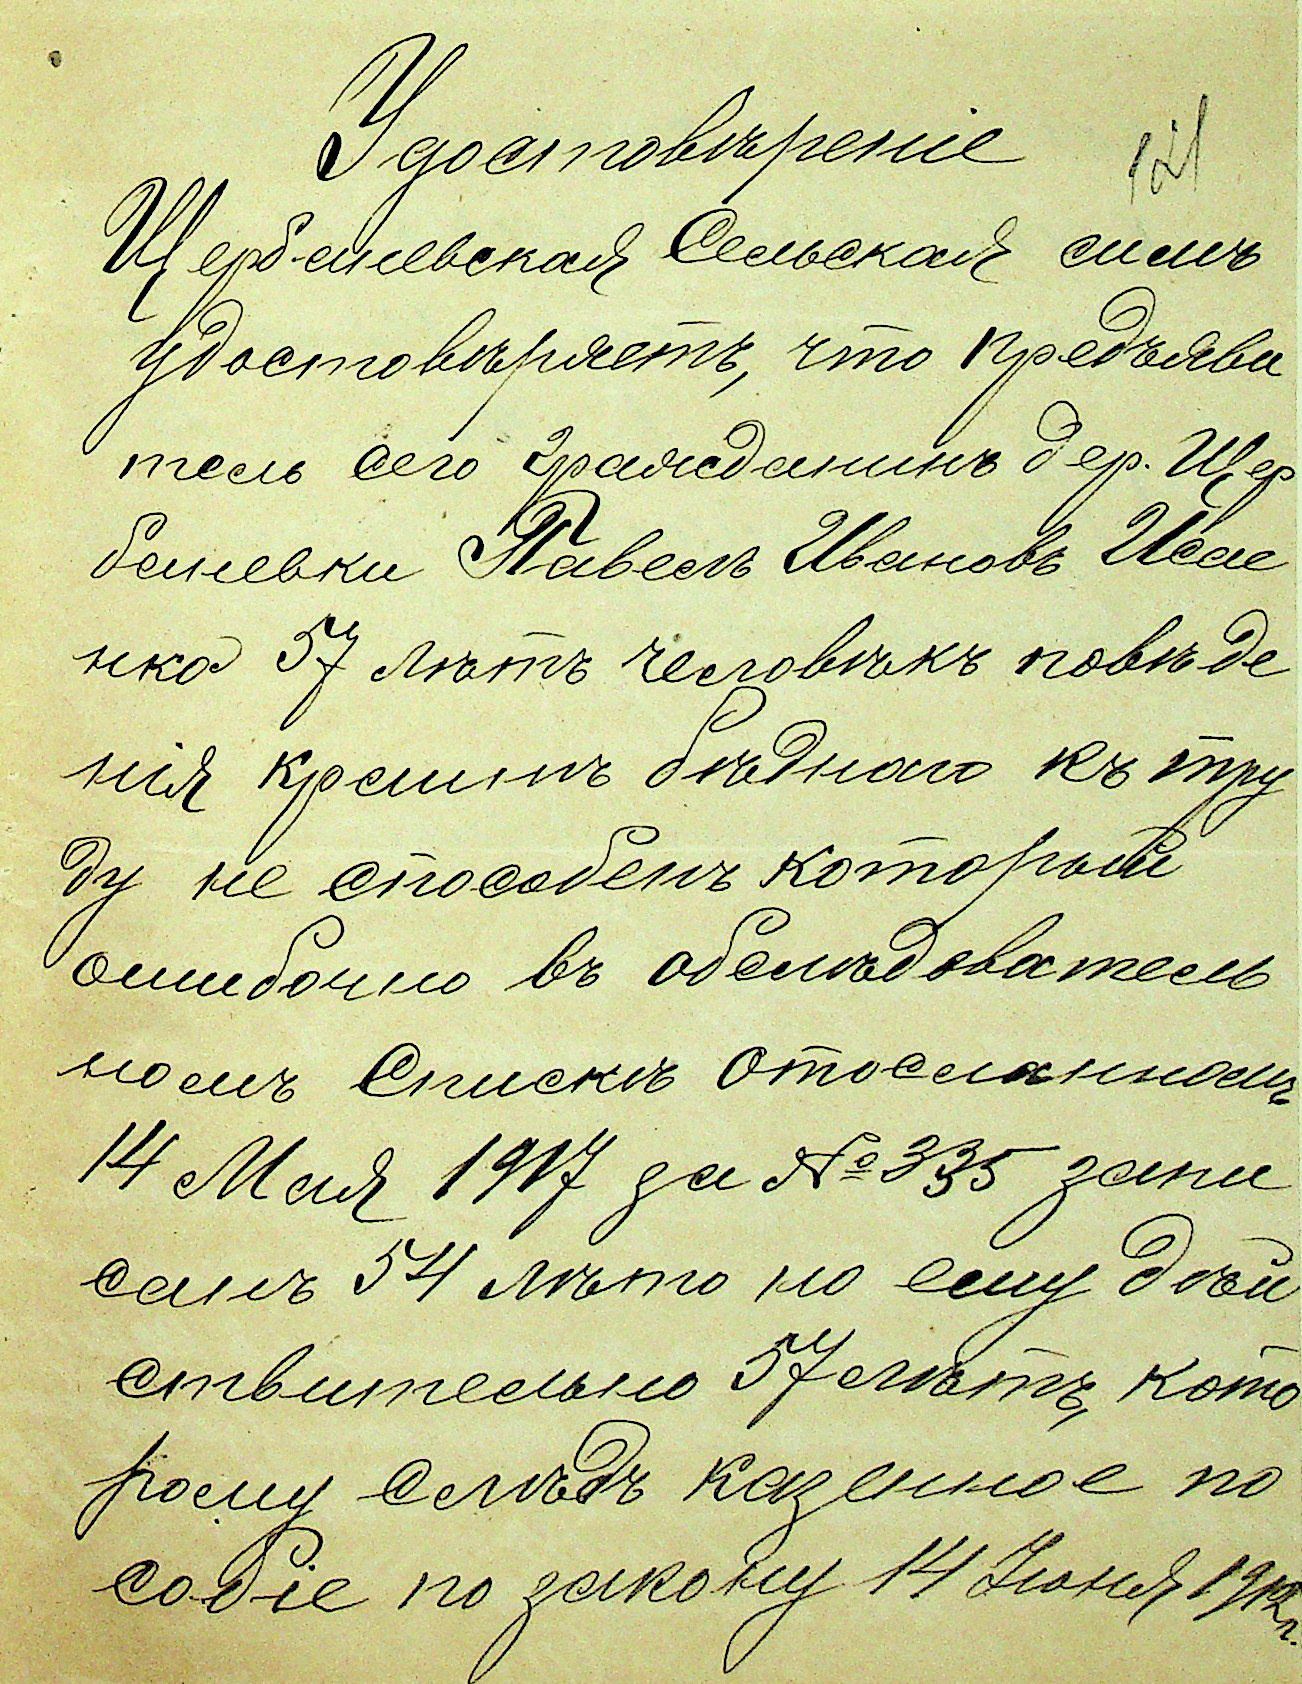 Удостовѣреніе
121
Щербиневская Сельская симъ
удостовѣряетъ, что предъяви
тель сего гражданинъ дер. Щер
биневки Павелъ Ивановъ Исае
нко 57 лѣтъ человѣкъ повѣде
нія крайнъ бѣднаго къ тру
ду не способенъ который
ошибочно въ обслѣдователь
номъ Спискѣ отосланномъ
14 Мая 1917 за № 335 запи
санъ 54 лѣто но ему дѣй
ствительно 57 лѣтъ, кото
рому слѣдъ казенное по
собіе по закону 14 Іюня 1912 г.